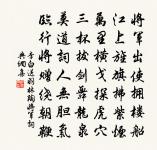 將軍出使擁樓船
江上旌旗拂紫煙
萬里橫戈探虎穴
三杯拔劍舞龍泉
莫道詞人無膽氣
臨行將贈繞朝鞭
李白送羽林陶將軍詞